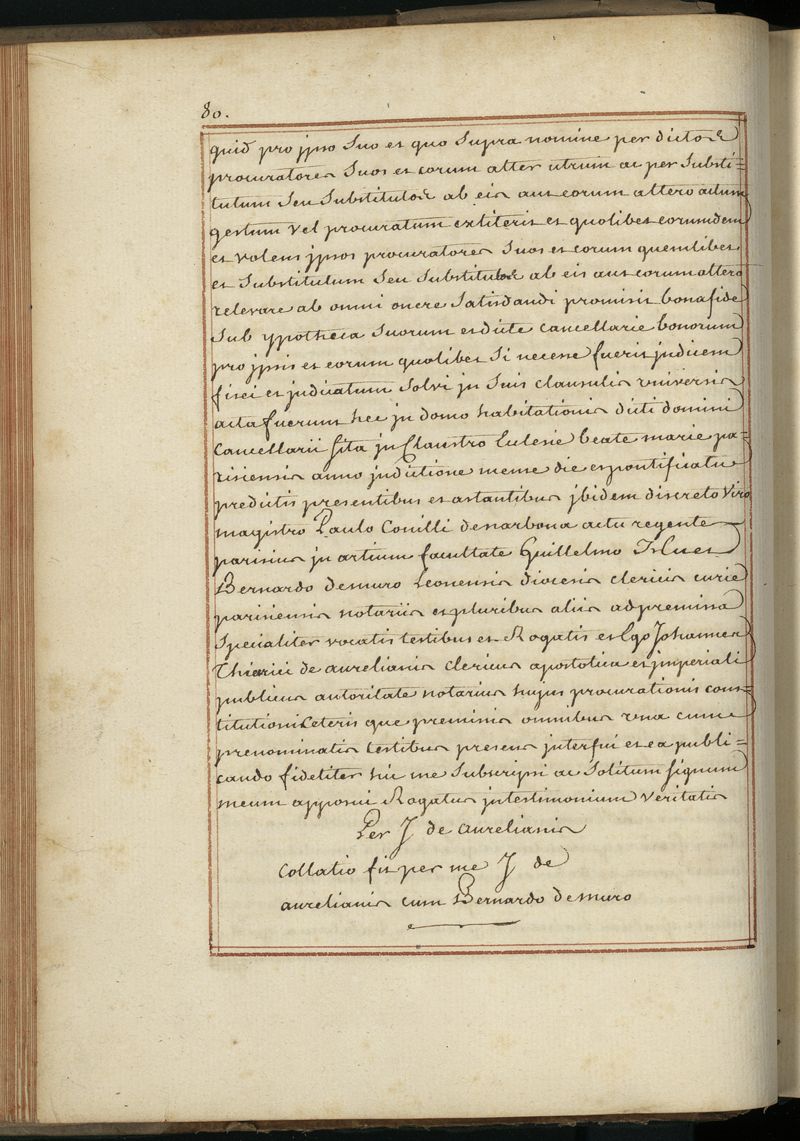 80.
quid pro jpso Suo et quo Supra nomine per dictos
procuratores Suos et eorum alter utrum ac per Substi=
tutum Seu Substitutos ab eis aut eorum altero actum
gestum vel procuratum extiterit et quolibet eorumdem
et volens jpsos procuratores Suos et eorum quemlibet
et Substitutum Seu Substitutos ab eis aut eorum altero
relevare ab omni onere Satisdandi promisit bonafide
Sub ypotheca Suorum et dicte cancellarie bonorum
pro jpsis et eorum quolibet Si necesse fuerit judicem
fisci et judicatum Solvi jn Suis clausulis universis
acta fuerunt hec jn domo habitationis dicti domini
Cancellarii Sita jn Claustro Eclesie beate marie pa=
risiensis anno jndictione mense die et pontificatu
predictis presentibus et astantibus jbidem discreto viro
magistro Paulo Conilli denarbona actu regente
parisius jn artium facultate Guillelmo
Bernardo demuro Leonensis diocesis clericis curie
parisiensis notariis et pluribus aliis ad premissa
Specialiter vocatis testibus et Rogatis et Ego Johannes
Thierici de aurelianis clericus apostolica et jmperiali
publicus autoritate notarius hujus procurationis cons=
titutioni Ceteris que premissis omnibus una cum
prenominatis testibus presens jnterfui et ea publi=
cando fideliter hic me Subscripsi ac Solitum Signum
meum apposui Rogatus jn testimonium veritatis
Per J de aurelianis
Collatio fit per me J de
aurelianis cum Bernardo demuro